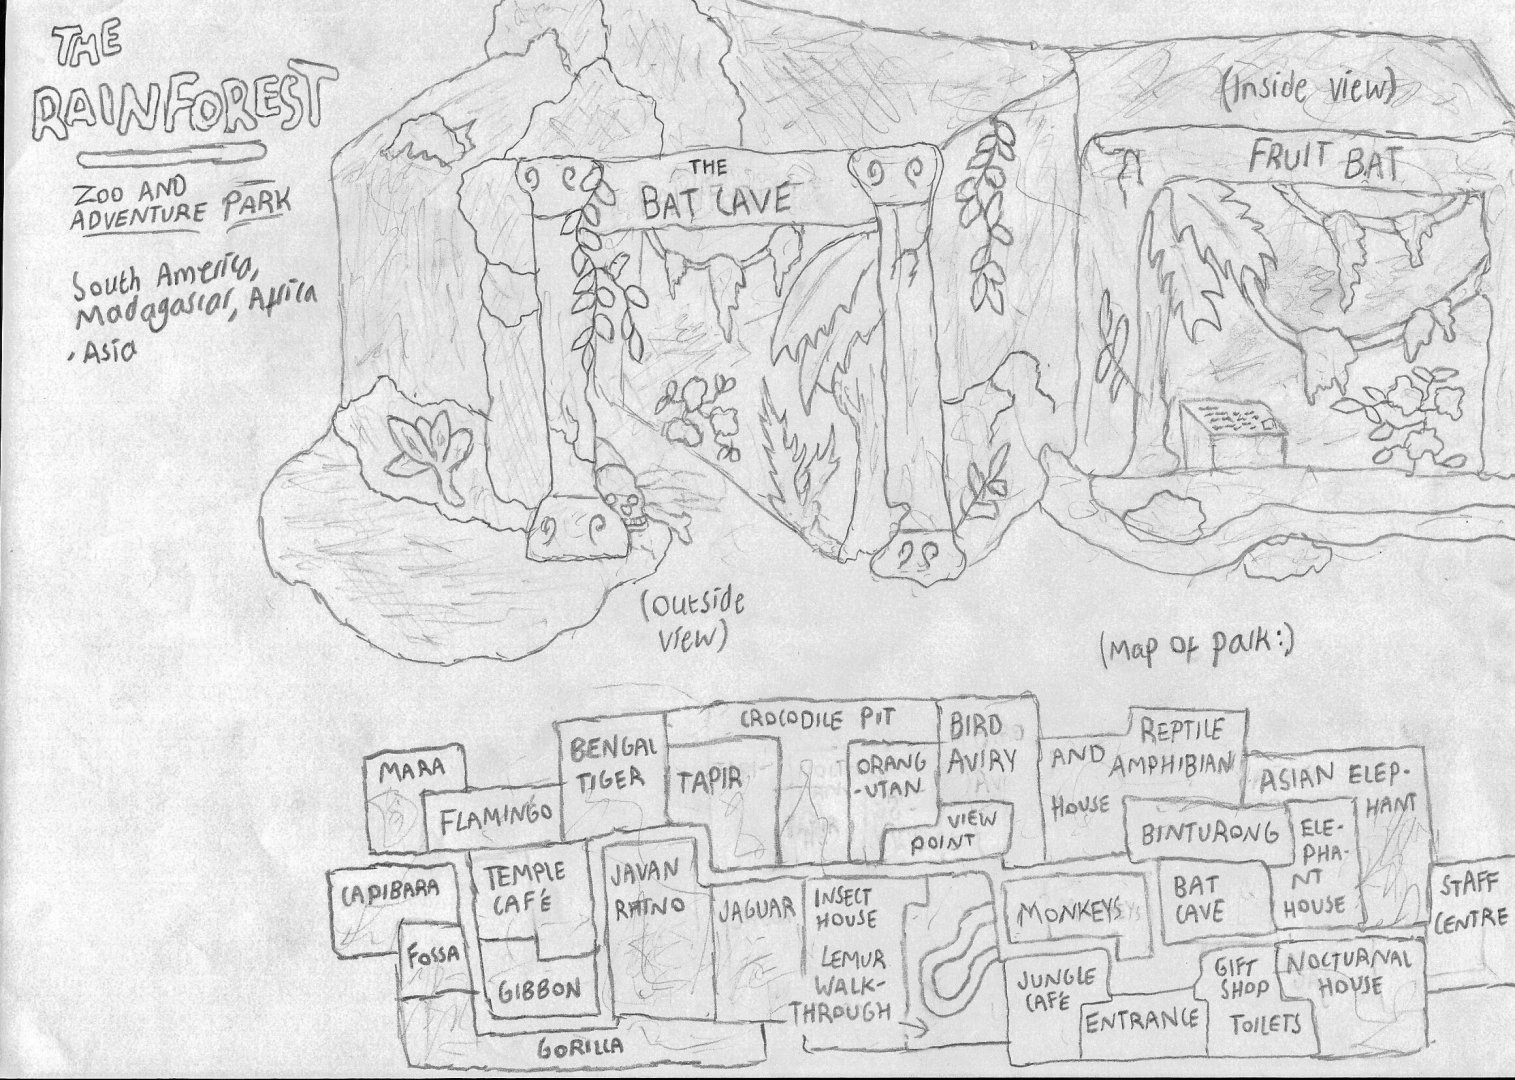 THE
RAINFOREST
ZOO AND
ADVENTURE PARK
South America,
Madagascar, Africa
, Asia
THE
BAT CAVE
(Inside view)
FRUIT BAT
(Outside
view)
(Map of park:)
MARA
FLAMINGO
BENGAL
TIGER
CROCODILE PIT
TAPIR
ORANG
-UTAN
BIRD
AVIRY
VIEW
POINT
REPTILE
AND AMPHIBIAN
HOUSE
BINTURONG
ASIAN ELEP-
HANT
ELE-
PHA-
NT
HOUSE
CAPIBARA
FOSSA
TEMPLE
CAFÉ
GIBBON
GORILLA
JAVAN
RHINO
JAGUAR
INSECT
HOUSE
LEMUR
WALK-
THROUGH
MONKEYS
BAT
CAVE
STAFF
CENTRE
JUNGLE
CAFÉ
ENTRANCE
GIFT
SHOP
TOILETS
NOCTURNAL
HOUSE